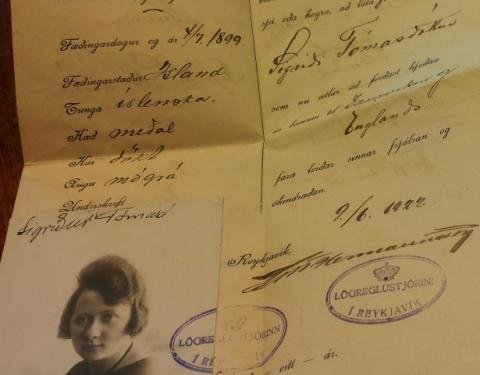 Fæðingardagur og ár 4/7. 1899.
Fæðingarstaður Ísland
Tunga íslenska.
Hæð meðal
Hár dökt
Augu mógrá
Undirskrift
Sigríður Tómasd.
LÖGREGLUSTJÓRINN
Í REYKJAVÍK
sjá eða heyra, að láta
Sigríði Tómasdóttur
sem nú ætlar að ferðast héðan
til Danmerkur og
Englands
fara leiðar sinnar frjálsan og
óhindraðan.
9/6. 1922
Reykjavík,
Jón Hermannsson
LÖGREGLUSTJÓRINN
Í REYKJAVÍK
eitt — ár.